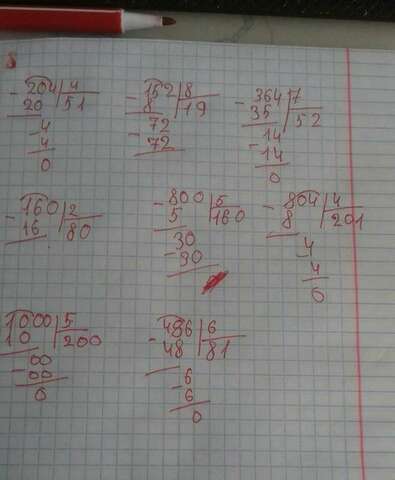 204 4 152 8 364 7
- 20 51 - 8 19 - 35 52
4 72 14
- 4 - 72 - 14
0 0
160 2 800 5 804 4
- 16 80 - 5 160 - 8 201
30 4
- 30 - 4
0
1000 5 486 6
10 200 - 48 81
00 6
- 00 - 6
0 0